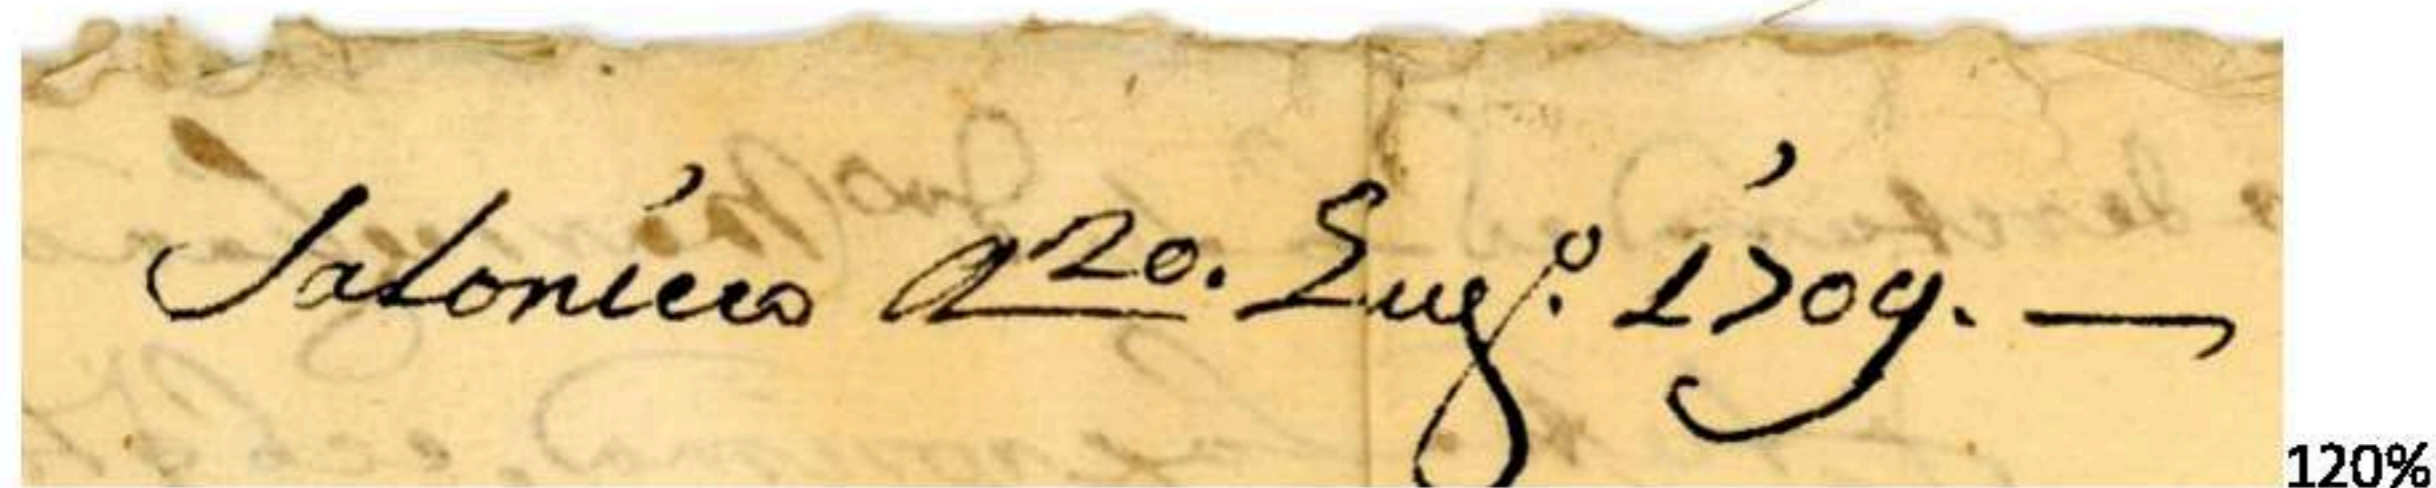 Salonicco a 20. Lug.º 1709. —
120%